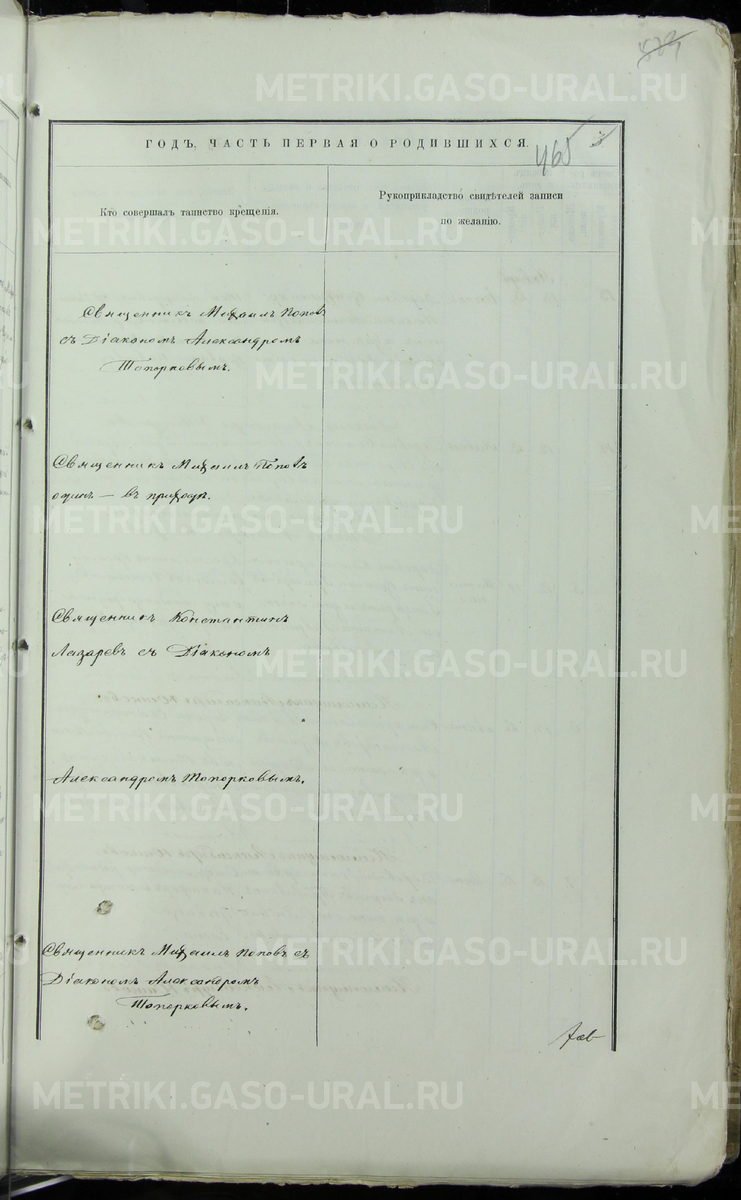 465
ГОДЪ. ЧАСТЬ ПЕРВАЯ О РОДИВШИХСЯ.
Кто совершалъ таинство крещенія.
Рукоприкладство свидѣтелей записи
по желанію.
Священникъ Михаилъ Поповъ
съ Діакономъ Александромъ
Топорковымъ.
Священникъ Михаилъ Поповъ
одинъ — въ приходѣ.
Священникъ Константинъ
Лазаревъ съ Діакономъ
Александромъ Топорковымъ.
Священникъ Михаилъ Поповъ съ
Діакономъ Александромъ
Топорковымъ.
METRIKI.GASO-URAL.RU